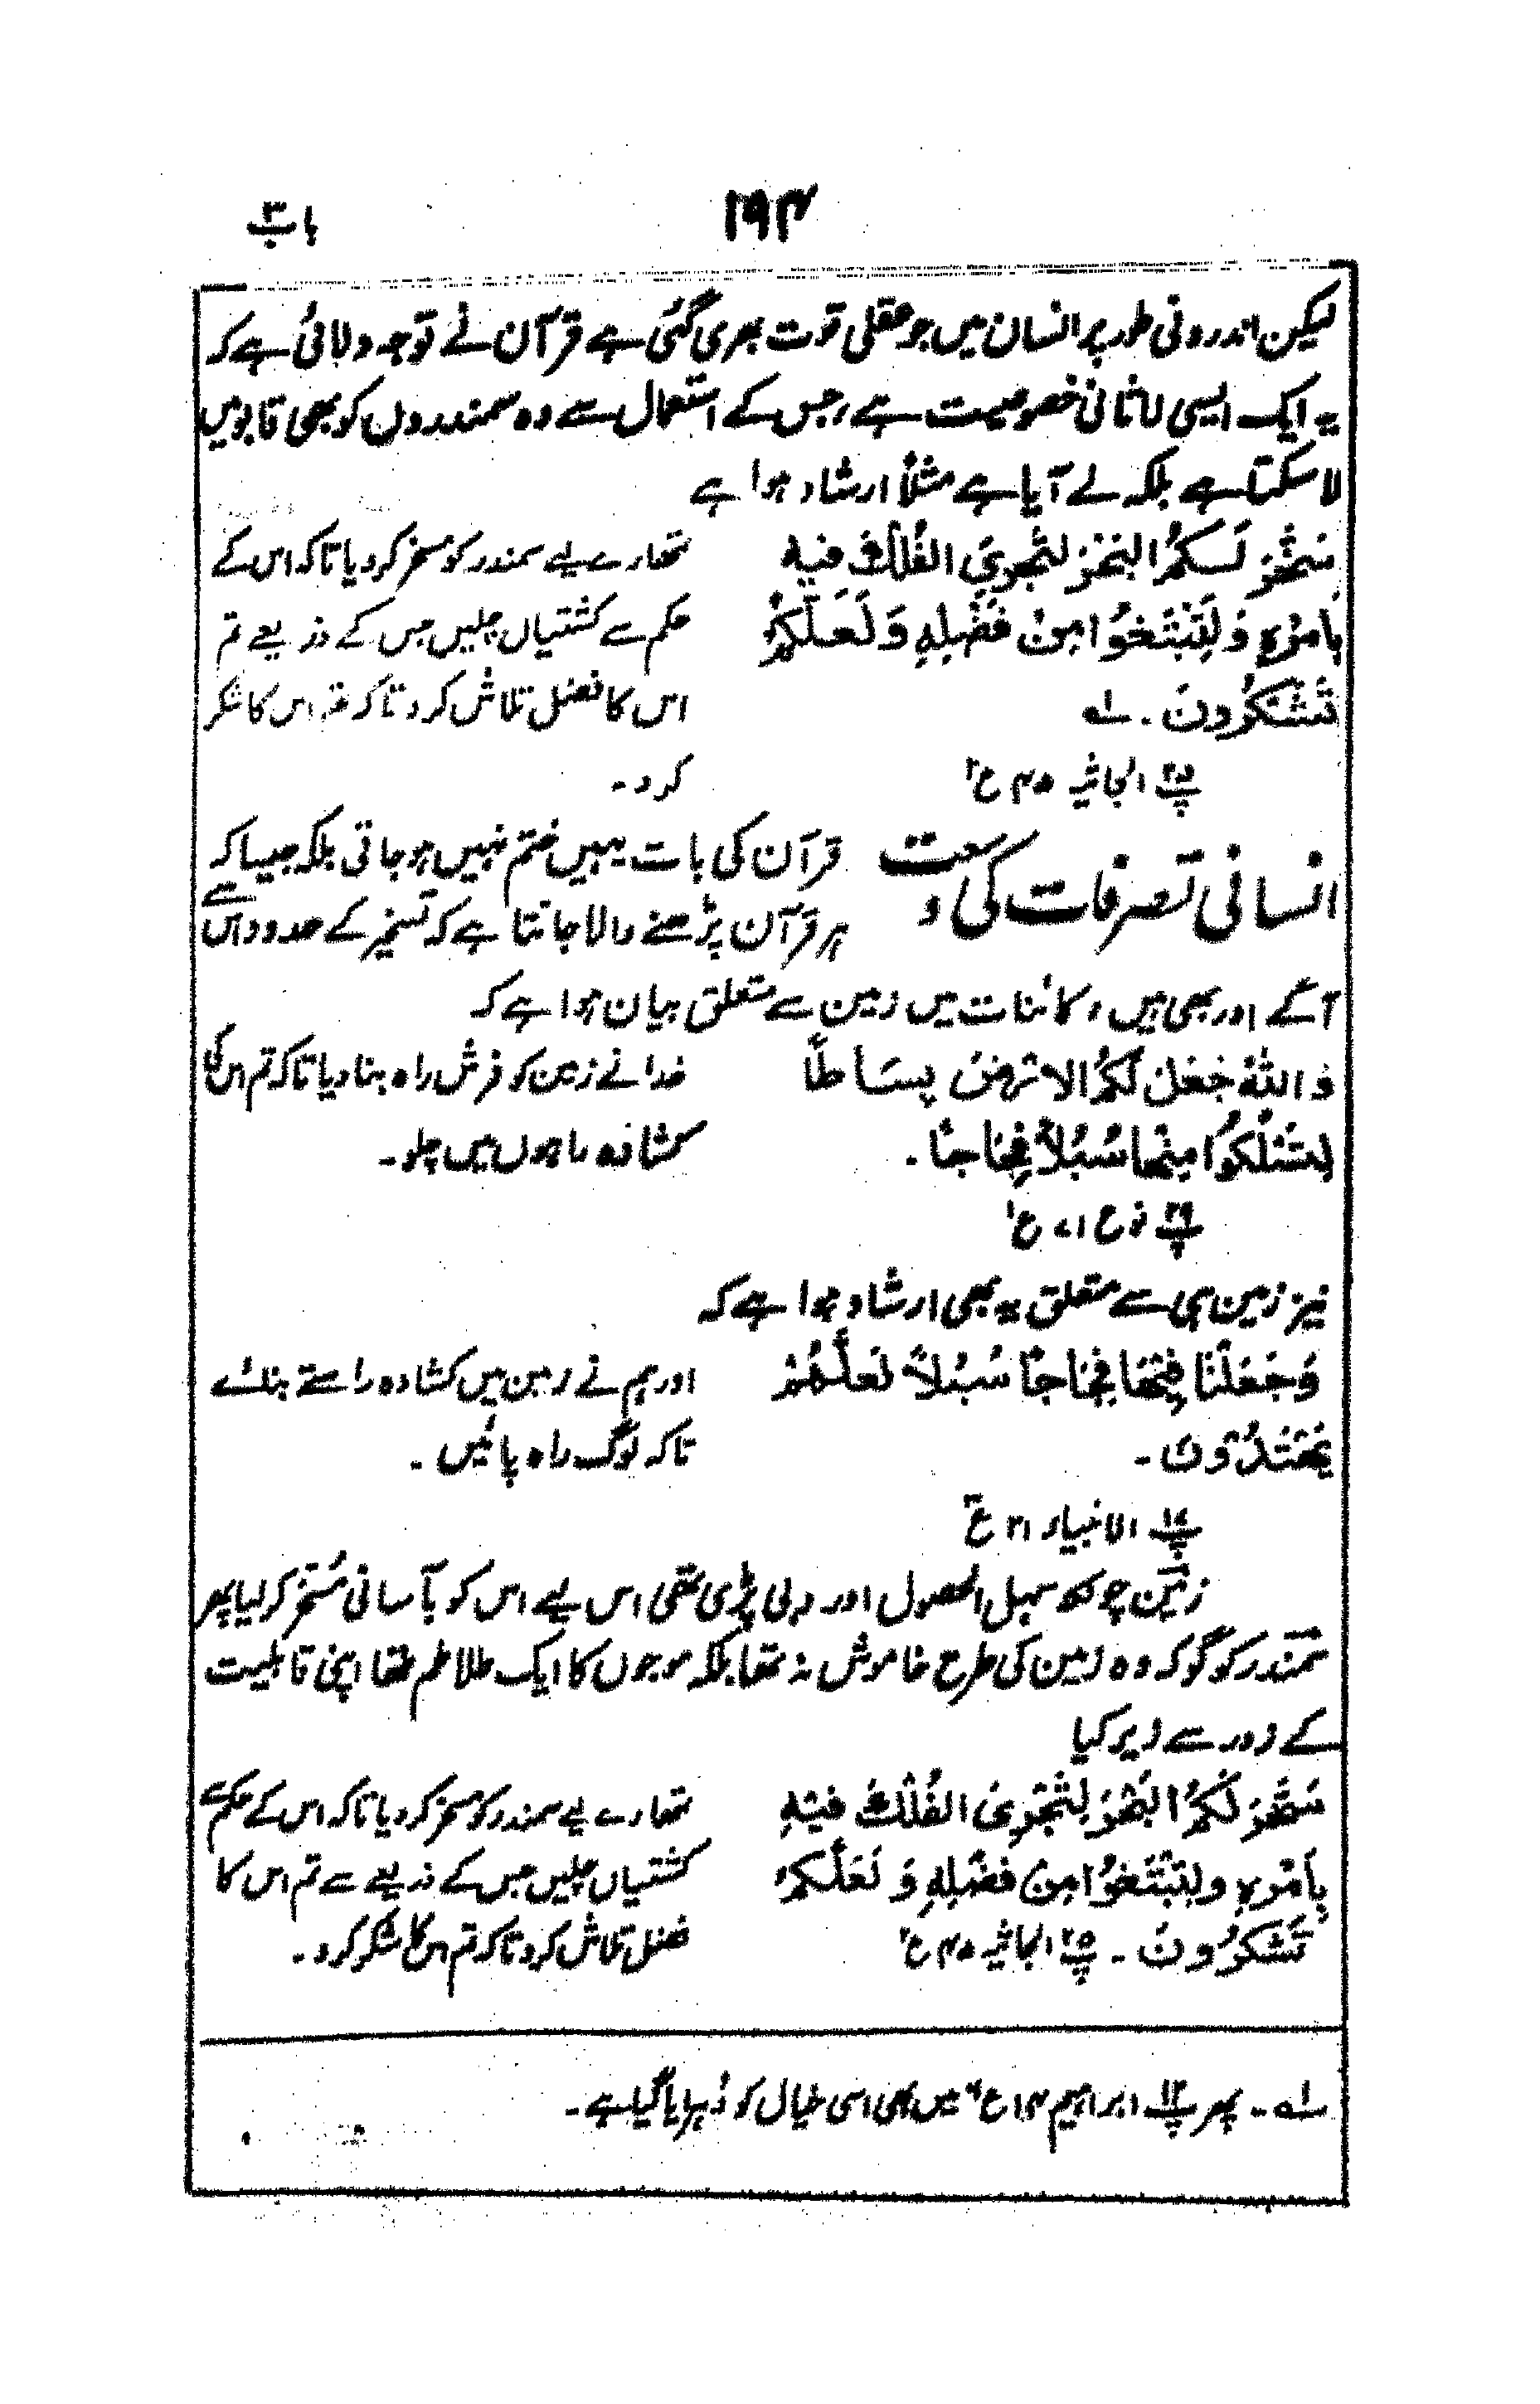 باب ۳
۱۹۴
لیکن اندرونی طور پر انسان میں جو عقلی قوت بھری گئی ہے قرآن نے توجہ دلائی ہے کہ
یہ ایک ایسی لاثانی خصوصیت ہے، جس کے استعمال سے وہ سمندروں کو بھی قابو میں
لا سکتا ہے بلکہ لے آیا ہے مثلاً ارشاد ہوا ہے
سَخَّرَ لَكُمُ الْبَحْرَ لِتَجْرِيَ الْفُلْكُ فِيهِ
بِأَمْرِهِ وَلِتَبْتَغُوا مِنْ فَضْلِهِ وَلَعَلَّكُمْ
تَشْكُرُونَ ۔ ۱ه
پ ۲۵ الجاثیہ ۴۵ ع ۲
تمھارے لیے سمندر کو مسخر کر دیا تاکہ اس کے
حکم سے کشتیاں چلیں جس کے ذریعے تم
اس کا فضل تلاش کرو تاکہ تم اس کا شکر
کرو ۔
انسانی تصرفات کی وسعت
قرآن کی بات یہیں ختم نہیں ہو جاتی بلکہ جیسا کہ
ہر قرآن پڑھنے والا جانتا ہے کہ تسخیر کے حدود اس سے
آگے اور بھی ہیں، کائنات میں زمین سے متعلق بیان ہوا ہے کہ
وَاللَّهُ جَعَلَ لَكُمُ الْأَرْضَ بِسَاطًا
لِتَسْلُكُوا مِنْهَا سُبُلًا فِجَاجًا ۔
پ ۲۹ نوح ۷۱ ع ۱
خدا نے زمین کو فرش راہ بنا دیا تاکہ تم اس کی
کشادہ راہوں میں چلو ۔
نیز زمین ہی سے متعلق یہ بھی ارشاد ہوا ہے کہ
وَجَعَلْنَا فِيهَا فِجَاجًا سُبُلًا لَعَلَّهُمْ
يَهْتَدُونَ ۔
پ ۱۷ الانبیاء ۲۱ ع ۳
اور ہم نے زمین میں کشادہ راستے بنائے
تاکہ لوگ راہ پائیں ۔
زمین چونکہ سہل الحصول اور دبی پڑی تھی اس لیے اس کو بآسانی مُسخّر کر لیا پھر
سمندر کو گو کہ وہ زمین کی طرح خاموش نہ تھا بلکہ موجوں کا ایک طلاطم تھا اپنی قابلیت
کے زور سے زیر کیا
سَخَّرَ لَكُمُ الْبَحْرَ لِتَجْرِيَ الْفُلْكُ فِيهِ
بِأَمْرِهِ وَلِتَبْتَغُوا مِنْ فَضْلِهِ وَلَعَلَّكُمْ
تَشْكُرُونَ ۔ پ ۲۵ الجاثیہ ۴۵ ع ۲
تمھارے لیے سمندر کو مسخر کر دیا تاکہ اس کے حکم سے
کشتیاں چلیں جس کے ذریعے سے تم اس کا
فضل تلاش کرو تاکہ تم اس کا شکر کرو ۔
۱ه ۔ پھر پ ۱۳ ابراہیم ۱۴ ع میں بھی اسی خیال کو دُہرایا گیا ہے ۔